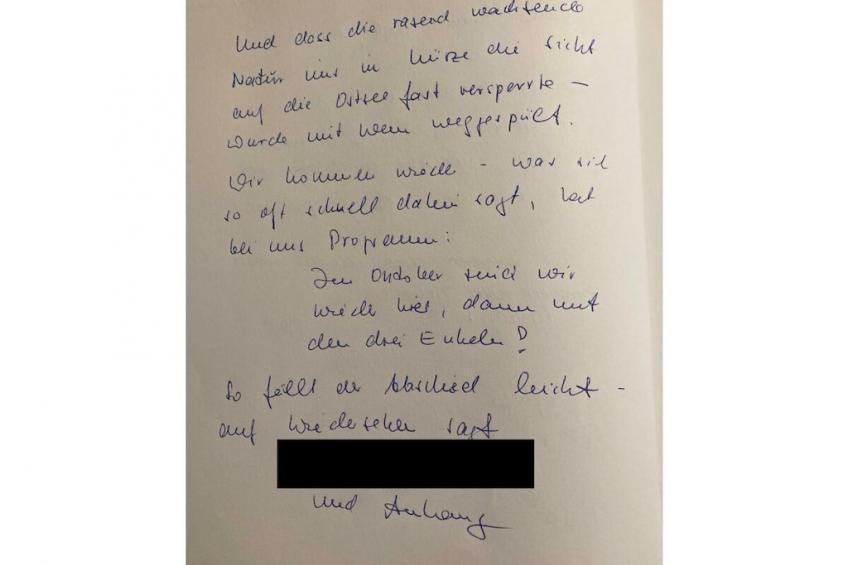 Und dass die rasend wachsende
Natur uns in Kürze die Sicht
auf die Ostsee fast versperrte –
wurde mit Wein weggespült.
Wir kommen wieder – was sich
so oft schnell dahin sagt, hat
bei uns Programm:
Im Oktober sind wir
wieder hier, dann mit
den drei Enkeln!
So fällt der Abschied leicht –
auf Wiedersehen sagt
und Anhang